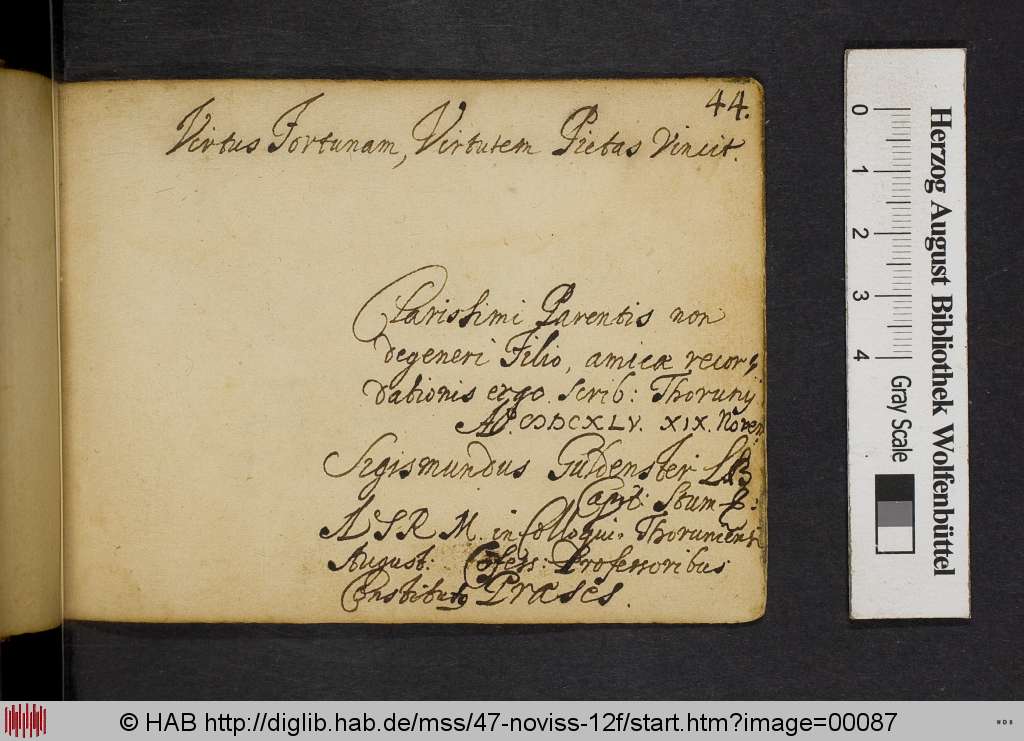 44.
Virtus Fortunam, Virtutem Pietas Vincit.
Clarissimi Parentis non
degeneri Filio, amicæ recor
dationis ergo. scrib: Thorunij
Aº. MDCXLV. XIX. Novem
Sigismundus Guldenster LB
Capit: Stum
A S R M. in Colloqui Thoruniensi
August: Confess: Professoribus
Constitutg Præses.
0 1 2 3 4
Gray Scale
Herzog August Bibliothek Wolfenbüttel
© HAB http://diglib.hab.de/mss/47-noviss-12f/start.htm?image=00087